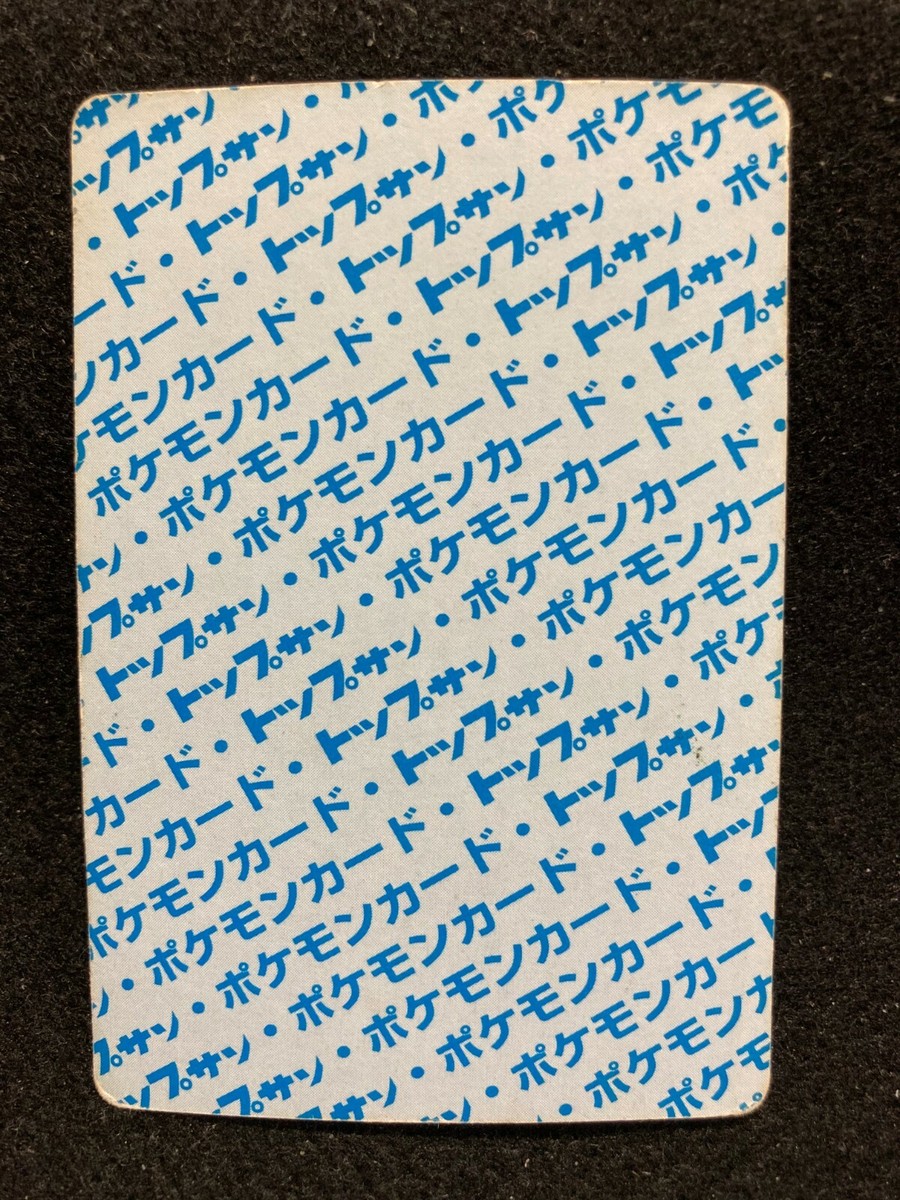 サン
ップサン
・トップサン・
ード・トップサン・ポ
ンカード・トップサン・ポケ
ケモンカード・トップサン・ポケモ
ポケモンカード・トップサン・ポケモ
サン・ポケモンカード・トップサン・ポケ
ップサン・ポケモンカード・トップサン・
トップサン・ポケモンカード・トップ
ド・トップサン・ポケモンカード・トッ
カード・トップサン・ポケモンカード・
モンカード・トップサン・ポケモンカー
ポケモンカード・トップサン・ポケモン
ン・ポケモンカード・トップサン・ポケ
プサン・ポケモンカード・トップサン・
ップサン・ポケモンカード・トップサ
プサン・ポケモンカード・トップ
サン・ポケモンカード・
ン・ポケモンカー
・ポケモンカ
ポケモ